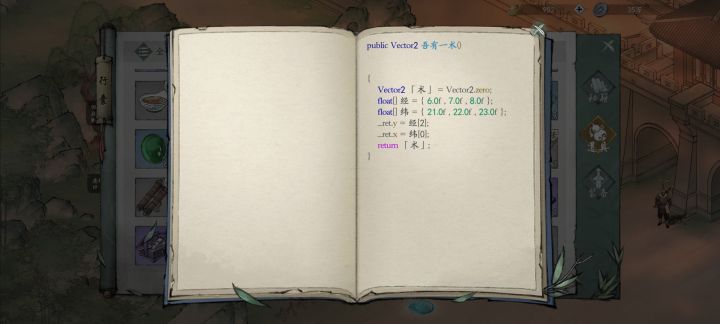 992
35万
行囊
全
public Vector2 吾有一术()
{
Vector2 「术」 = Vector2.zero;
float[] 经 = { 6.0f , 7.0f , 8.0f };
float[] 纬 = { 21.0f , 22.0f , 23.0f };
_ret.y = 经[2];
_ret.x = 纬[0];
return 「术」;
}
道具